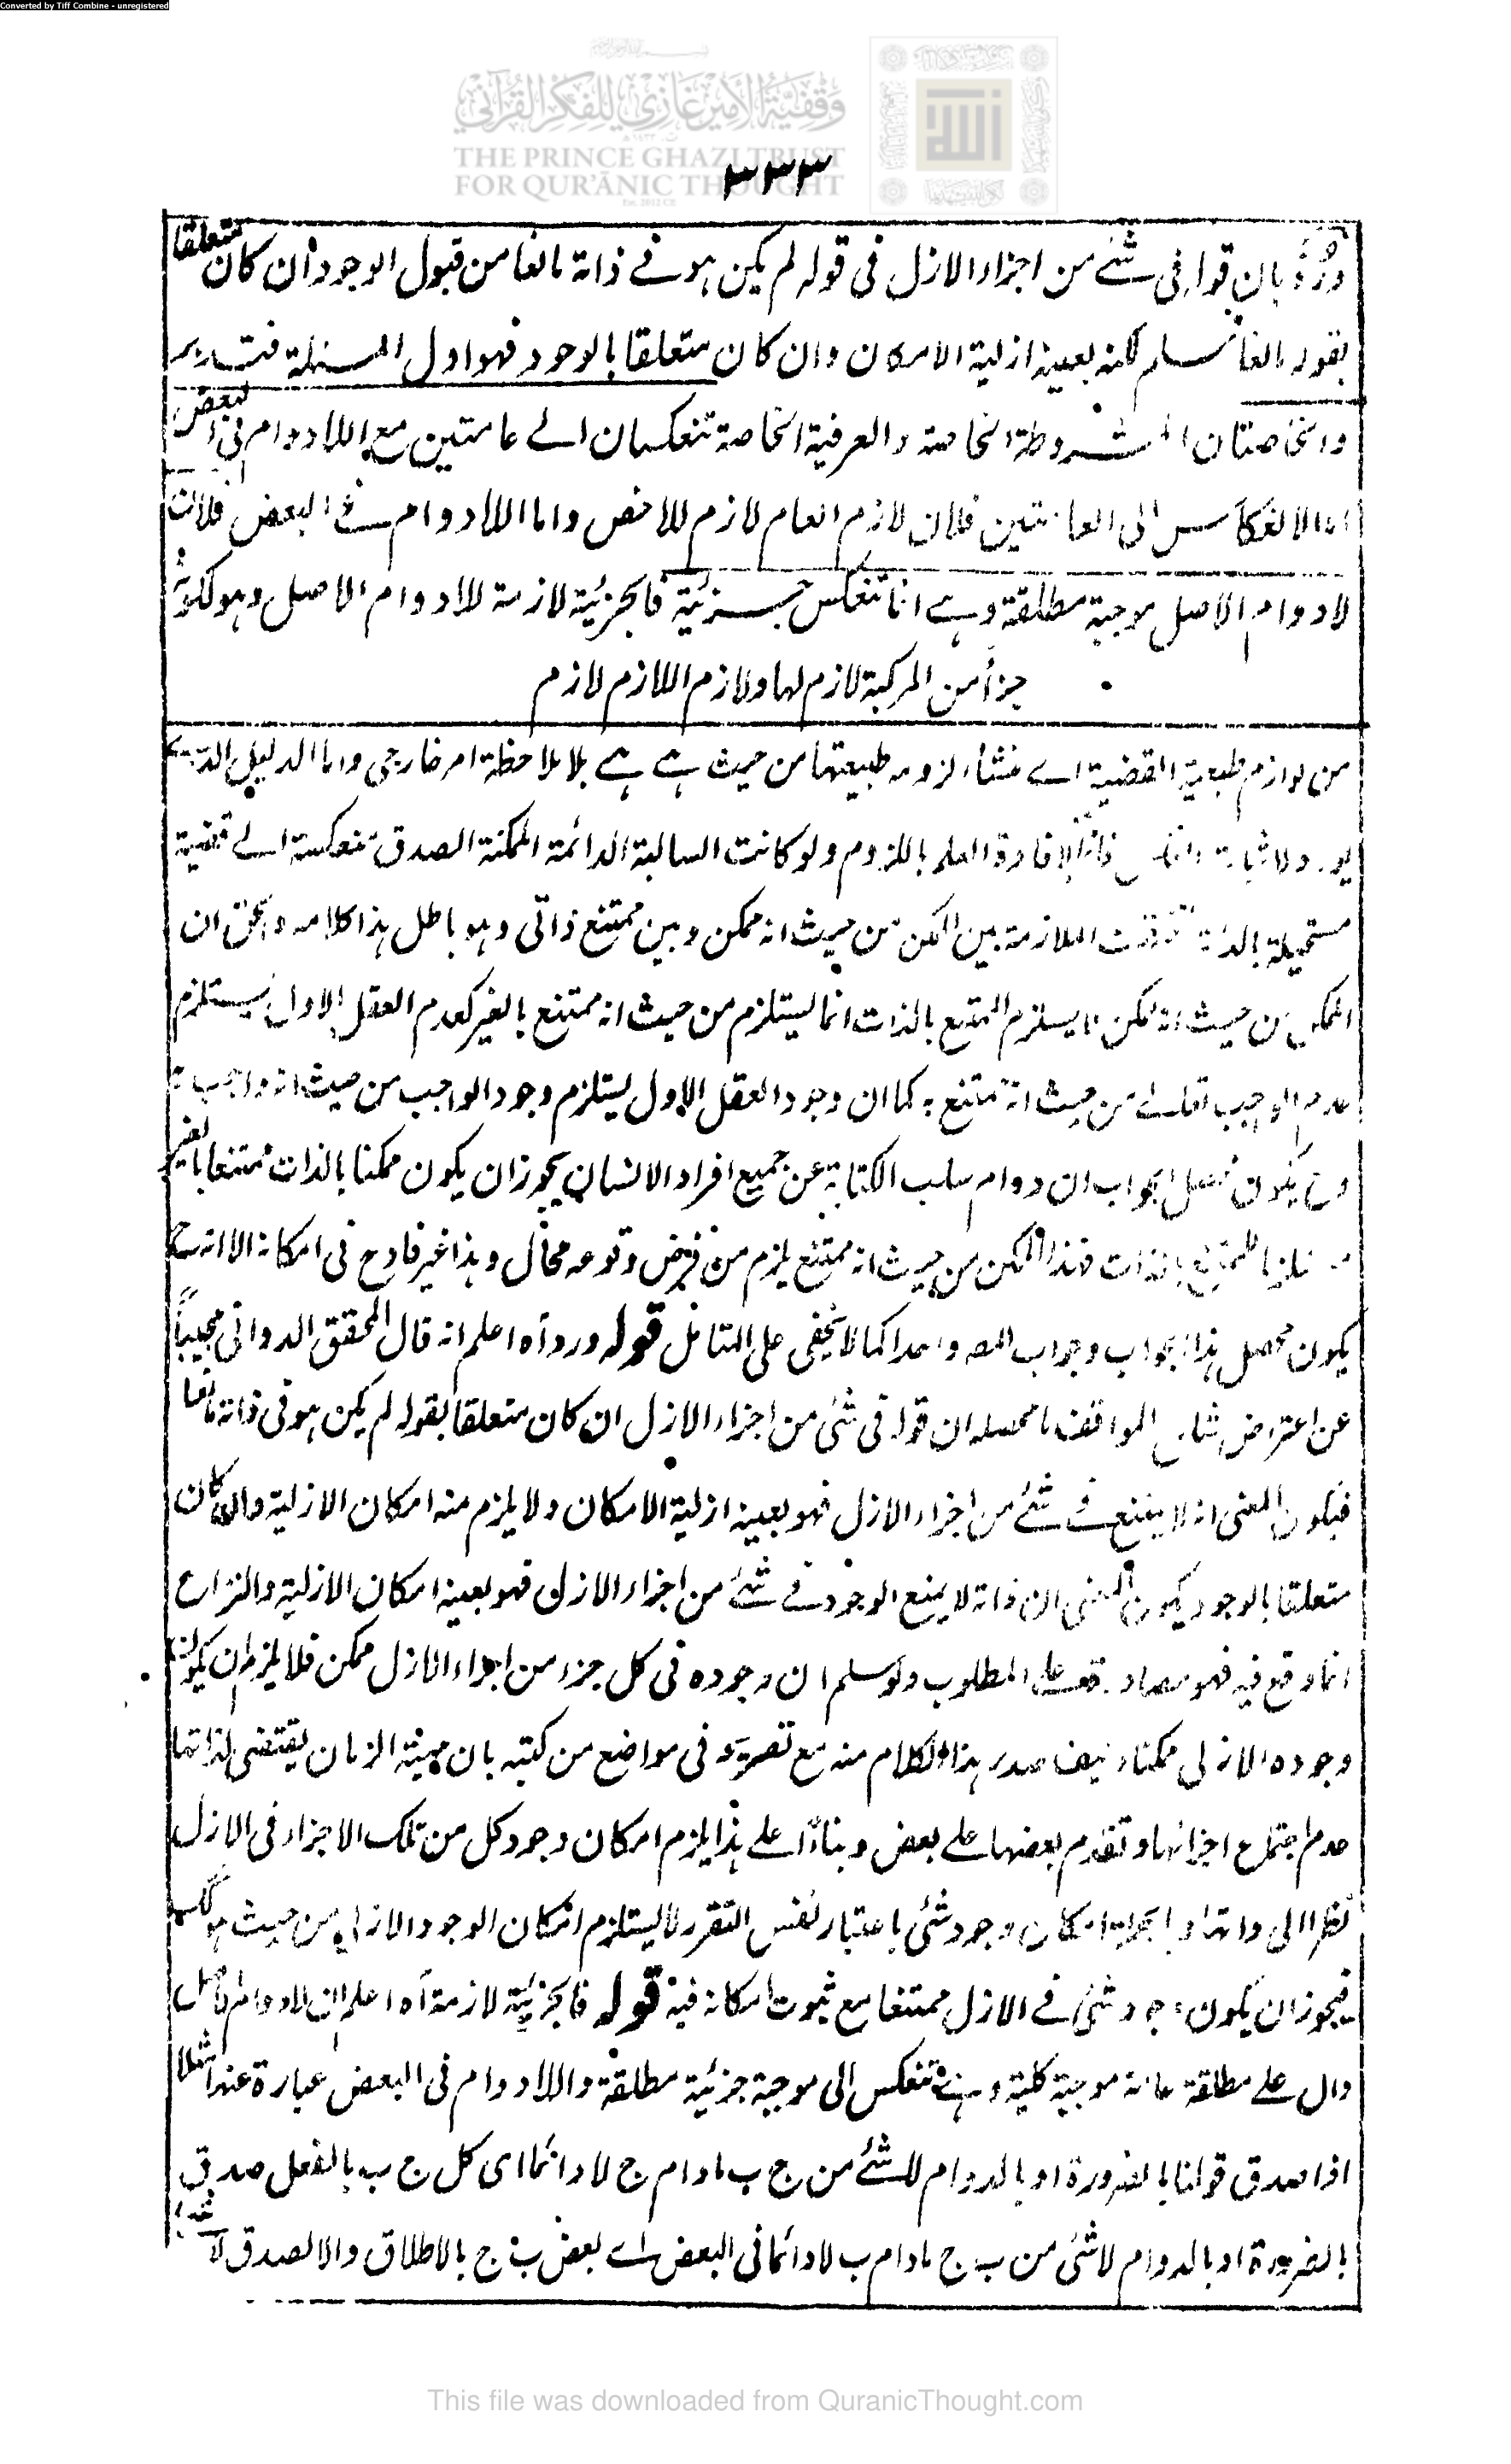 Converted by Tiff Combine - unregistered
وقفية الأمير غازي للفكر القرآني
THE PRINCE GHAZI TRUST
FOR QUR'ĀNIC THOUGHT
٣٣٣
ورد بان قوله في شئ من اجزاء الازل في قوله لم يكن هو في ذاته مانعا من قبول الوجود ان كان متعلقا
بقوله مانعا مسلم لكنه بعينه ازلية الامكان وان كان متعلقا بالوجود فهو اول المسئلة فتدبر
والخاصتان المشروطة الخاصة والعرفية الخاصة تنعكسان الى عامتين مع اللادوام في البعض
اما الانعكاس الى العامتين فلان لازم العام لازم للاخص واما اللادوام في البعض فلان
لادوام الاصل موجبة مطلقة وهي انما تنعكس جزئية فالجزئية لازمة للادوام الاصل وهو لكونه
جزأ من المركبة لازم لها ولازم اللازم لازم
من لوازم طبيعة القضية اى منشاء لزومه طبيعتها من حيث هي هي بلا ملاحظة امر خارجي واما الدليل الذي
يورد لاثبات فانما لافادة العلم باللزوم ولو كانت السالبة الدائمة الممكنة الصدق منعكسة الى قضية
مستحيلة بالذات الملازمة بين الممكن من حيث انه ممكن وبين ممتنع ذاتي وهو باطل هذا كلامه والحق ان
الممكن من حيث انه ممكن لا يستلزم الممتنع بالذات انما يستلزم من حيث انه ممتنع بالغير كعدم العقل الاول يستلزم
عدم الواجب تعالى من حيث انه ممتنع به كما ان وجود العقل الاول يستلزم وجود الواجب من حيث انه واجب به
وح يكون محصل الجواب ان دوام سلب الكتابة عن جميع افراد الانسان يجوز ان يكون ممكنا بالذات ممتنعا بالغير
للممتنع بالذات فهذا الممكن من حيث انه ممتنع يلزم من فرض وقوعه محال وهذا غير قادح في امكانه الا انه ح
يكون محصل هذا الجواب وجواب المصه واحدا كما لا يخفى على المتامل قوله ورد آه اعلم انه قال المحقق الدواني مجيباً
عن اعتراض شارح المواقف ما محصله ان قوله في شئ من اجزاء الازل ان كان متعلقا بقوله لم يكن هو في ذاته مانعا
فيكون المعنى انه لا يمنع في شئ من اجزاء الازل فهو بعينه ازلية الامكان ولا يلزم منه امكان الازلية وان كان
متعلقا بالوجود يكون المعنى ان ذاته لا يمنع الوجود في شئ من اجزاء الازل فهو بعينه امكان الازلية والنزاع
انما وقع فيه فهو مصادرة على المطلوب ولو سلم ان وجوده في كل جزء من اجزاء الازل ممكن فلا يلزم ان يكون
وجوده الازلي ممكنا كيف صدر هذا الكلام منه مع تصريحه في مواضع من كتبه بان مهية الزمان يقتضى لذاتها
عدم اجتماع اجزائها وتقدم بعضها على بعض وبناءً على هذا يلزم امكان وجود كل من تلك الاجزاء في الازل
نظرا الى ذاتها وبالجملة امكان وجود شئ باعتبار نفس التقرر لا يستلزم امكان الوجود الازلي من حيث هو كك
فيجوز ان يكون وجود شئ في الازل ممتنعا مع ثبوت امكانه فيه قوله فالجزئية لازمة آه اعلم ان لادوام الاصل
دال على مطلقة عامة موجبة كلية وهذه تنعكس الى موجبة جزئية مطلقة واللادوام في البعض عبارة عنها مثلا
اذا صدق قولنا بالضرورة او بالدوام لا شئ من ج ب مادام ج لا دائما اى كل ج ب بالفعل صدق
بالضرورة او بالدوام لا شئ من ب ج مادام ب لا دائما في البعض اى بعض ب ج بالاطلاق والا لصدق لا شئ
This file was downloaded from QuranicThought.com